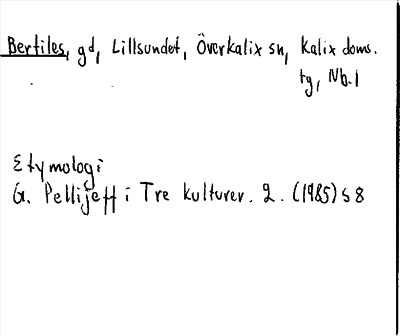 Bertiles, gd, Lillsundet, Överkalix sn, Kalix doms.
tg, Nb.l
Etymologi
G. Pellijeff i Tre kulturer. 2. (1985) s 8